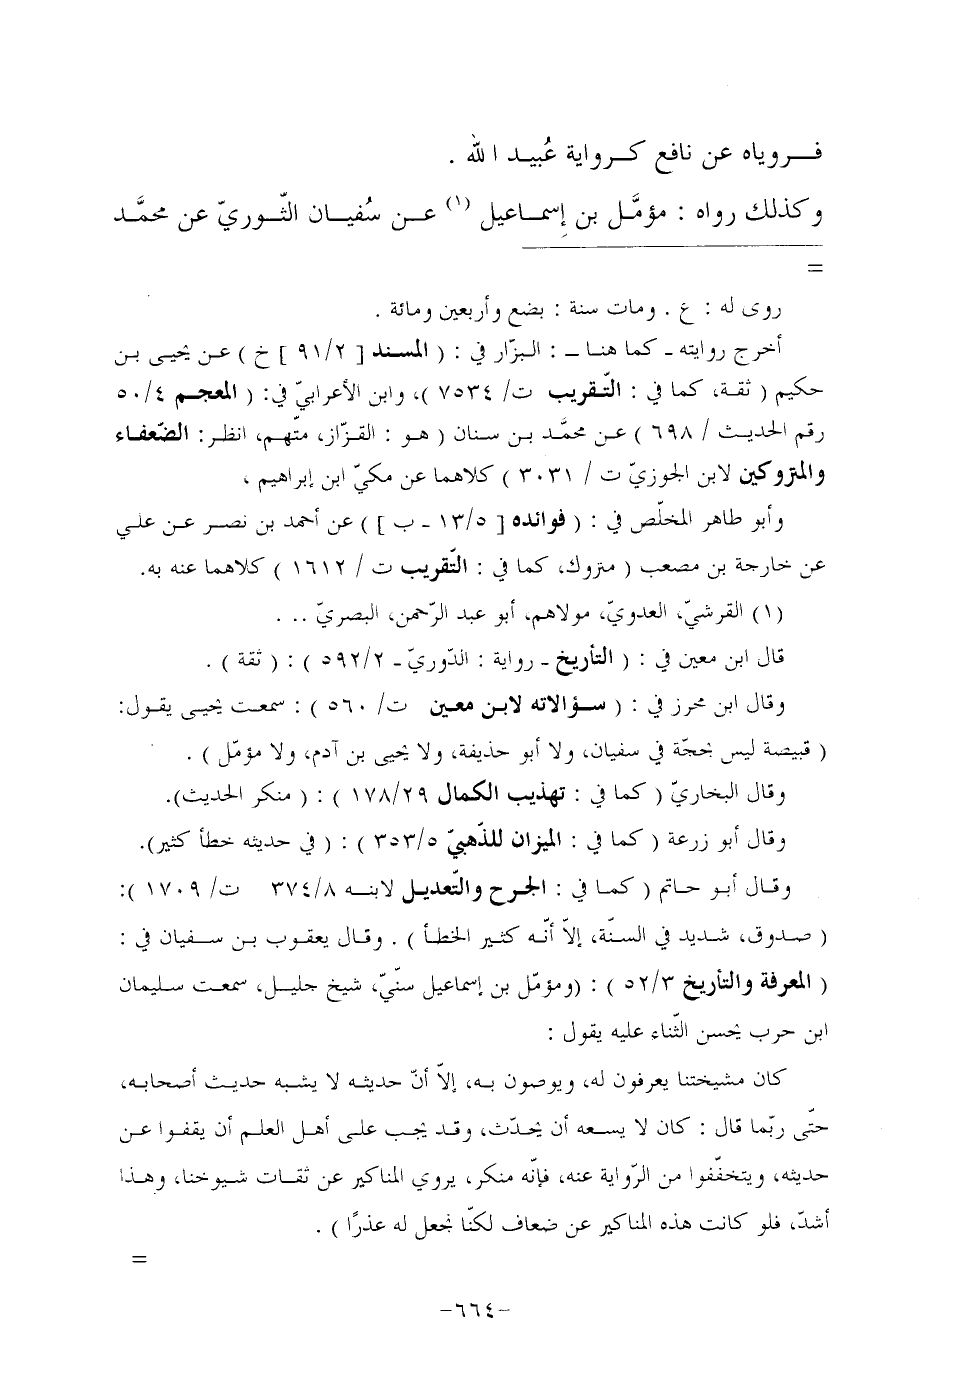 فـــروياه عن نافع كـــرواية عُبيـد الله .
وكذلك رواه : مؤمَّـل بن إسمـاعيل (١) عـن سُفيـان الثّـوريّ عن محمَّـد
=
روى له : ع . ومات سنة : بضع وأربعين ومائة .
أخرج روايته ـ كما هنـا ـ : البزّار في : ( المسند [ ٩١/٢ ] خ ) عـن يحيـى بن
حكيم ( ثقة، كما في : التّقريب ت/ ٧٥٣٤ )، وابن الأعرابيّ في: ( المعجـم ٥٠/٤
رقم الحديـث / ٦٩٨ ) عـن محمَّـد بـن سنان ( هو : القـزّاز، متّهـم، انظر: الضّعفـاء
والمتروكين لابن الجوزيّ ت / ٣٠٣١ ) كلاهما عن مكيّ ابن إبراهيم ،
وأبو طاهر المخلّص في : ( فوائده [ ١٣/٥ ـ ب ] ) عن أحمد بن نصـر عـن علـي
عن خارجة بن مصعب ( متروك، كما في : التّقريب ت / ١٦١٢ ) كلاهما عنه به.
(١) القرشيّ، العدويّ، مولاهم، أبو عبد الرّحمن، البصريّ . . .
قال ابن معين في : ( التأريخ ـ رواية : الدّوريّ ـ ٥٩٢/٢ ) : ( ثقة ) .
وقال ابن محرز في : ( سـؤالاته لابـن معـين ت/ ٥٦٠ ) : سمعـت يحيـى يقـول:
( قبيصة ليس بحجّة في سفيان، ولا أبو حذيفة، ولا يحيى بن آدم، ولا مؤمّل ) .
وقال البخاريّ ( كما في : تهذيب الكمال ١٧٨/٢٩ ) : ( منكر الحديث).
وقال أبو زرعة ( كما في : الميزان للذّهبيّ ٣٥٣/٥ ) : ( في حديثه خطأ كثير).
وقـال أبـو حـاتم ( كمـا في : الجرح والتّعديـل لابنـه ٣٧٤/٨ ت/ ١٧٠٩ ):
( صدوق، شديد في السنّة، إلاّ أنّه كثير الخطأ ) . وقـال يعقـوب بـن سـفيان في :
( المعرفة والتأريخ ٥٢/٣ ) : (ومؤمّل بن إسماعيل سنّيّ، شيخ جليـل، سمعـت سـليمان
ابن حرب يحسن الثّناء عليه يقول :
كان مشيختنا يعرفون له، ويوصون بـه، إلاّ أنّ حديثـه لا يشبه حديـث أصحابـه،
حتّى ربّما قال : كان لا يسـعه أن يحـدّث، وقـد يجـب علـى أهـل العلـم أن يقفـوا عـن
حديثه، ويتخفّفوا من الرّواية عنه، فإنّه منكر، يروي المناكير عن ثقـات شـيوخنـا، وهـذا
أشدّ، فلو كانت هذه المناكير عن ضعاف لكنّا نجعل له عذرًا ) .
=
-٦٦٤-